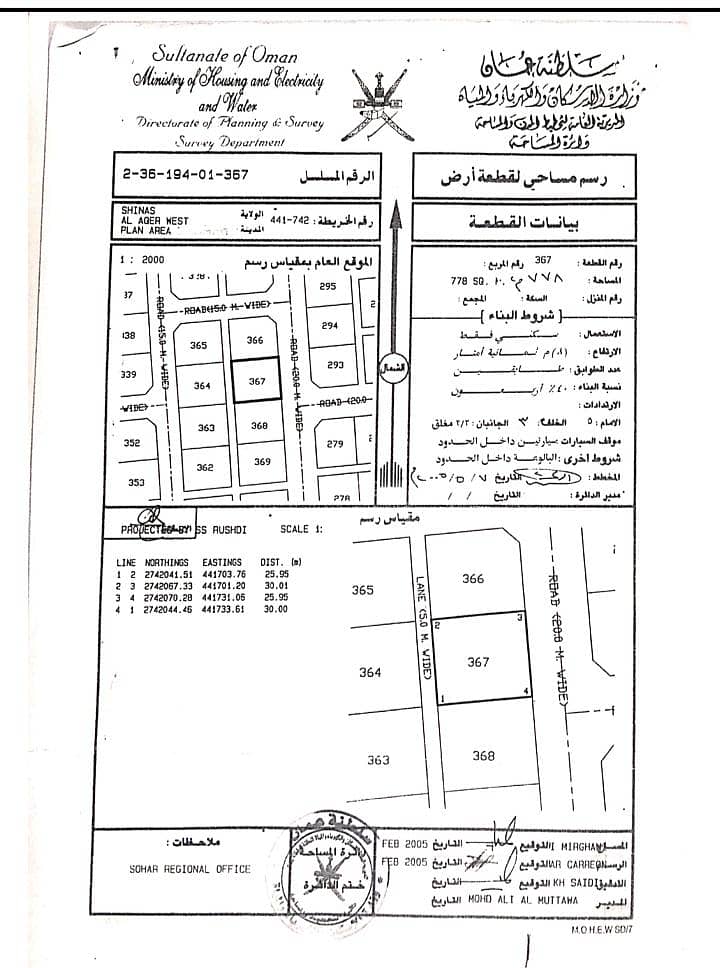 Sultanate of Oman
Ministry of Housing and Electricity
and Water
Directorate of Planning & Survey
Survey Department
سلطنة عمان
وزارة الإسكان والكهرباء والمياه
المديرية العامة لتخطيط المدن والمساحة
دائرة المساحة
2-36-194-01-367 الرقم المسلسل
رسم مساحي لقطعة أرض
SHINAS
AL AQER WEST
PLAN AREA
الولاية
المدينة:
رقم الخريطة: 441-742
بيانات القطعة
1 : 2000 الموقع العام بمقياس رسم
37
338
339
352
353
ROAD(15.0 M. WIDE)
ROAD(15.0 M. WIDE)
WIDE)
365
366
364
367
363
368
362
369
ROAD (20.0 M. WIDE)
295
294
293
ROAD (20.0
279
278
الشمال
رقم القطعة: 367 رقم المربع:
المساحة: ٧٧٨ م٢ 778 SQ. M.
رقم المنزل: السكة: المجمع:
[ شروط البناء ]
الاستعمال: سكني فقط
الارتفاع: (٨) م ثمانية أمتار
عدد الطوابق: طابقين
نسبة البناء: ٤٠٪ أربعون
الارتدادات:
الامام: ٥ الخلف: ٣ الجانبان: ٢/٢ مغلق
موقف السيارات سيارتين داخل الحدود
شروط اخرى: البالوعة داخل الحدود
المخطط: التاريخ ٢٠٠٥/٥/٧
مدير الدائرة: التاريخ / /
PROJECTED BY SS RUSHDI
SCALE 1:
مقياس رسم
LINE NORTHINGS EASTINGS DIST. (m)
1 2 2742041.51 441703.76 25.95
2 3 2742067.33 441701.20 30.01
3 4 2742070.28 441731.06 25.95
4 1 2742044.46 441733.61 30.00
365
364
363
LANE (5.0 M. WIDE)
366
2
3
367
1
4
368
ROAD (20.0 M. WIDE)
ملاحظات:
SOHAR REGIONAL OFFICE
سلطنة عمان
دائرة المساحة
ختم الدائرة
FEB 2005 التاريخ التوقيع I MIRGHANI
FEB 2005 التاريخ التوقيع
التاريخ التوقيع KH SAIDI
التاريخ MOHD ALI AL MUTTAWA المدير
M.O.H.E.W SD/7